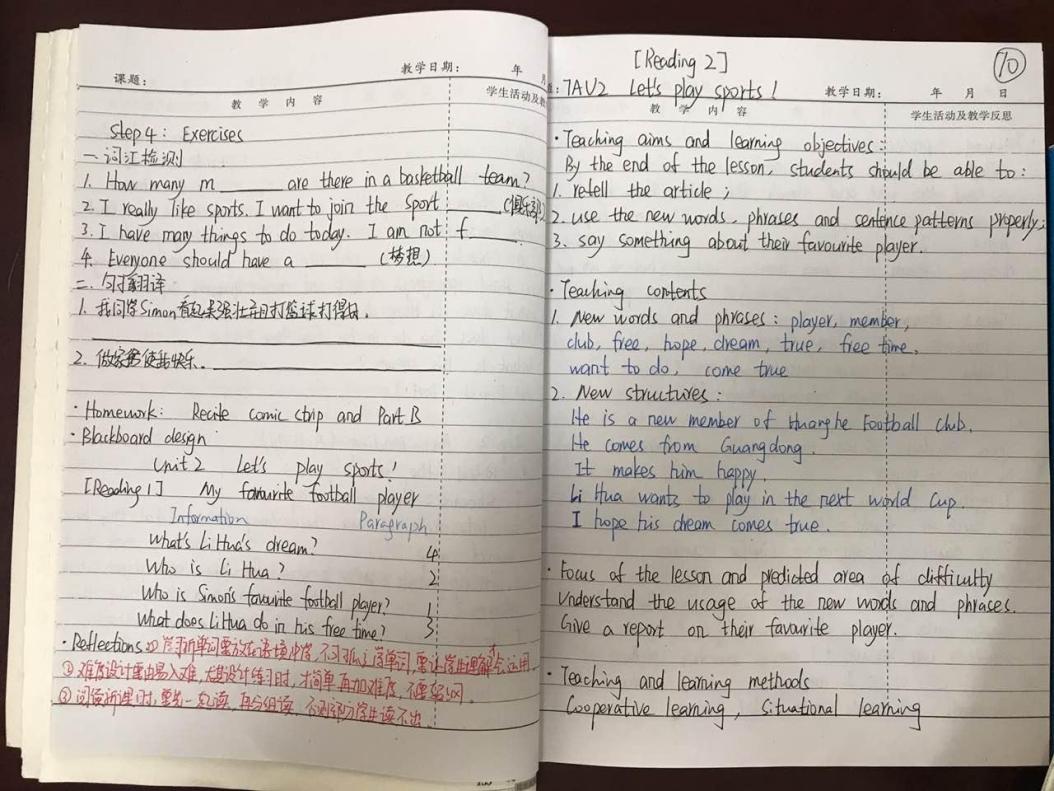 课题:
教学日期: 年 月
教 学 内 容
学生活动及教
Step 4: Exercises
一 词汇检测
1. How many m______ are there in a basketball team?
2. I really like sports. I want to join the sport ______ (俱乐部)
3. I have many things to do today. I am not f______.
4. Everyone should have a ______ (梦想)
二. 句子翻译
1. 我同学Simon看起来强壮并且打篮球打得好.
2. 做家务使我快乐.
· Homework: Recite comic strip and Part B
· Blackboard design
Unit 2 Let's play sports!
[Reading 1] My favourite football player
Information Paragraph
What's Li Hua's dream? 4
Who is Li Hua? 2
Who is Simon's favourite football player? 1
What does Li Hua do in his free time? 3
· Reflections: ① 学习新单词要放在语境中学, 不可孤立学单词, 要让学生理解并会运用.
② 难度设计要由易入难, 设计练习时, 才简单再加难度, 不要
③ 问答新课时, 要先一起读, 再分组读, 否则部分学生读不出.
[Reading 2]
10
7AU2 Let's play sports!
教学日期: 年 月 日
教 学 内 容
学生活动及教学反思
· Teaching aims and learning objectives:
By the end of the lesson, students should be able to:
1. retell the article;
2. use the new words, phrases and sentence patterns properly;
3. say something about their favourite player.
· Teaching contents
1. New words and phrases: player, member,
club, free, hope, dream, true, free time,
want to do, come true
2. New structures:
He is a new member of Huanghe Football Club.
He comes from Guangdong.
It makes him happy.
Li Hua wants to play in the next world Cup.
I hope his dream comes true.
· Focus of the lesson and predicted area of difficulty
Understand the usage of the new words and phrases.
Give a report on their favourite player.
· Teaching and learning methods
Cooperative learning, Situational learning